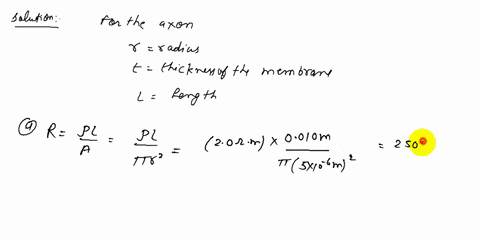 Solution: For the axon
r = radius
t = thickness of the membrane
L = length
(a) R = ρL/A = ρL/πr² = (2.0 Ω.m) × 0.010m/π(5×10⁻⁶m)² = 250